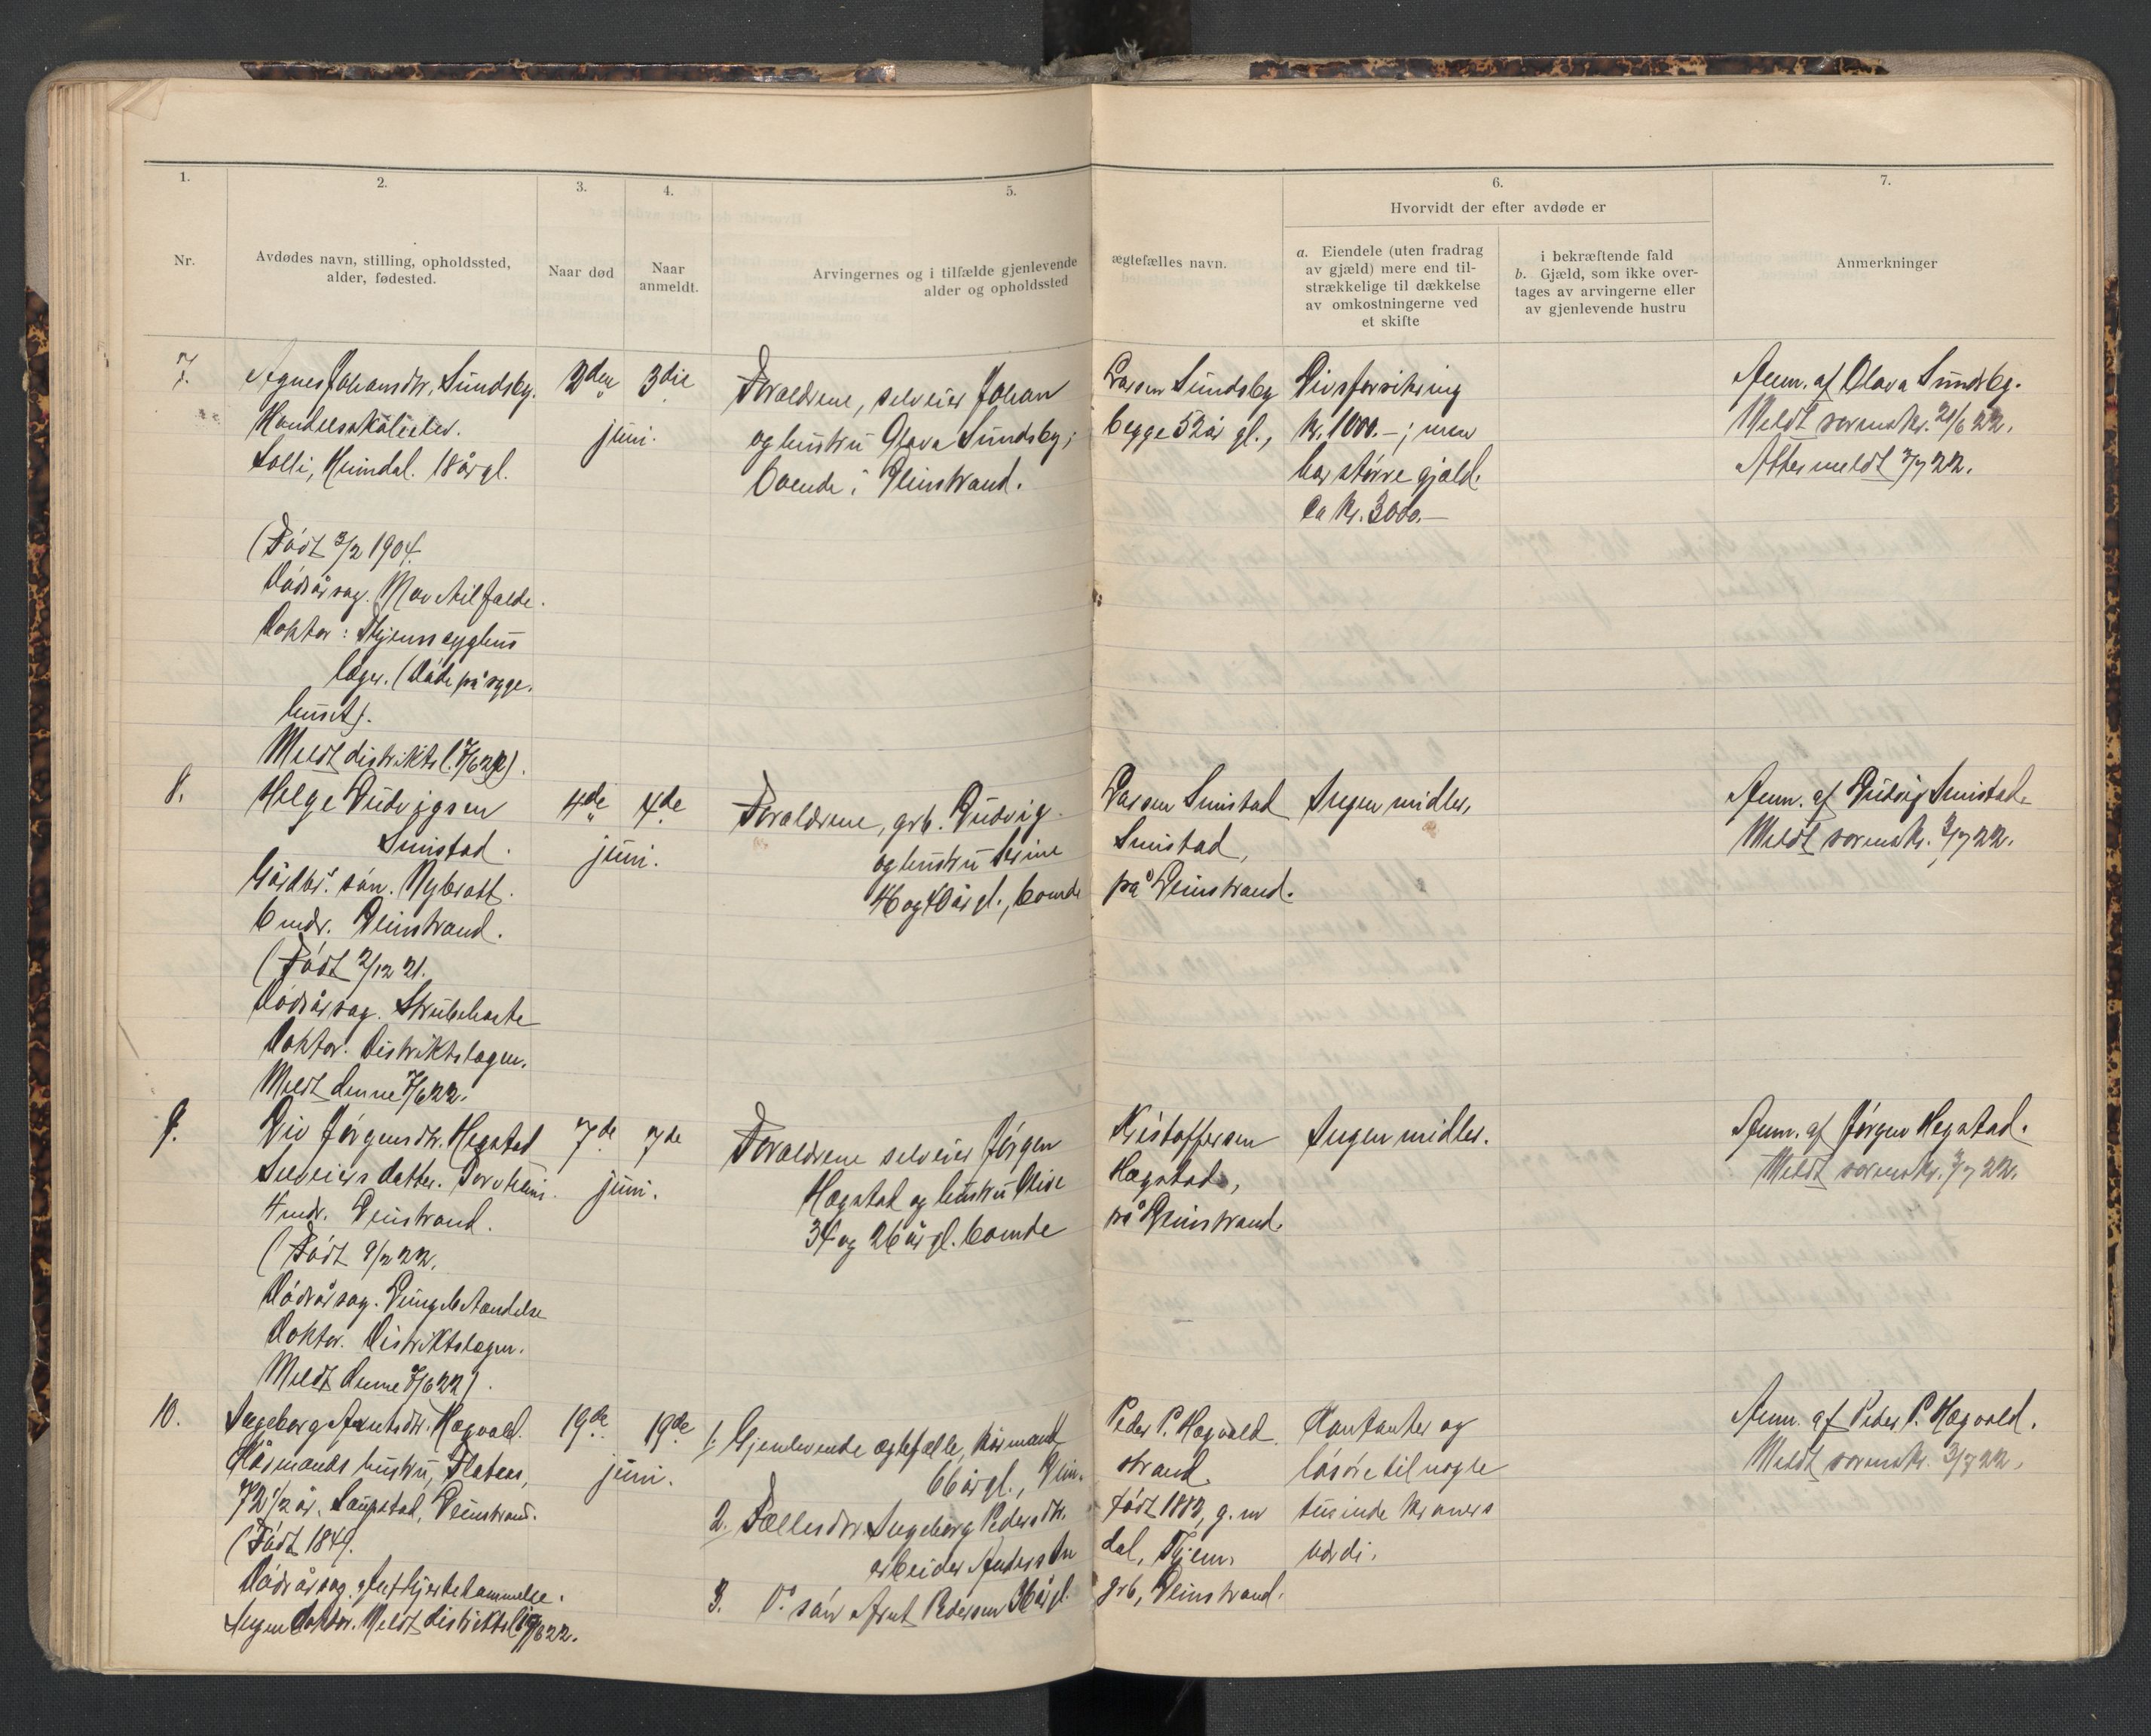 1.
2.
3.
4.
5.
6.
7.
Hvorvidt der efter avdøde er
Nr.
Avdødes navn, stilling, opholdssted,
alder, fødested.
Naar død
Naar
anmeldt.
Arvingernes og i tilfælde gjenlevende
alder og opholdssted
ægtefælles navn.
a. Eiendele (uten fradrag
av gjæld) mere end til-
strækkelige til dækkelse
av omkostningerne ved
et skifte
i bekræftende fald
b. Gjæld, som ikke over-
tages av arvingerne eller
av gjenlevende hustru
Anmerkninger
7.
Agnes Johansdtr. Sundsby.
Handelsskoleelev.
Solli, Heimdal. 18 år gl.
(Født 3/2 1904.
Dødsårsag. Mavetilfælde.
Doktor: Thjems sygehus
læger. (Døde på syge-
huset).
Meldt distriktsl. 7/6 22).
2den
juni.
3die
Forældrene, selveier Johan
og hustru Olava Sundsby;
boende i Leinstrand.
Larsen Sundsby
begge 52 år gl.,
Livsforsikring
kr. 1000.-; men
har større gjæld.
Ca kr. 3000.-
Anm. af Olava Sundsby.
Meldt sorenskr. 21/6 22.
Atter meldt 3/7 22.
8.
Helge Ludvigsen
Smistad.
Gårdbr. søn. Nybrott.
6 mdr. Leinstrand.
(Født 2/12 21.
Dødsårsag. Strubehoste
Doktor. Distriktslægen.
Meldt denne 7/6 22.
4de
juni.
4de
Forældrene, grb. Ludvig
og hustru Serine
46 og 40 år gl., boende
Larsen Smistad
Smistad,
på Leinstrand.
Ingen midler,
Anm. af Ludvig Smistad.
Meldt sorenskr. 3/7 22.
9.
Liv Jørgensdtr. Hegstad
Selveiers datter.
4 mdr. Leinstrand.
(Født 9/2 22.
Dødsårsag. Lungebetændelse
Doktor. Distriktslægen.
Meldt denne 7/6 22).
7de
juni.
7de
Forældrene selveier Jørgen
Hegstad og hustru
34 og 26 år gl. boende
Kristoffersen
Hegstad,
på Leinstrand.
Ingen midler.
Anm. af Jørgen Hegstad.
Meldt sorenskr. 3/7 22.
10.
Ingeborg Arntsdtr. Hægvold.
Kårmands hustru, Flatees,
72 1/2 år. Saupstad, Leinstrand.
(Født 1849.
Dødsårsag. Hjertelammelse.
Ingen doktor. Meldt distriktsl. 19/6 22.
19de
juni.
19de
1. Gjenlevende ægtefælle, kårmand
66 år gl., Lein-
2. Fællesdtr. Ingeborg Pedersdtr.
arbeider Anders
3. Do. søn Arnt Pedersen 36 år gl.
Peder P. Hægvold.
strand.
født 1882, g. m
dal, Thjem,
grb, Leinstrand.
Kontanter og
løsøre til nogle
tusinde kroners
værdi.
Anm. af Peder P. Hægvold.
Meldt sorenskr. 3/7 22.